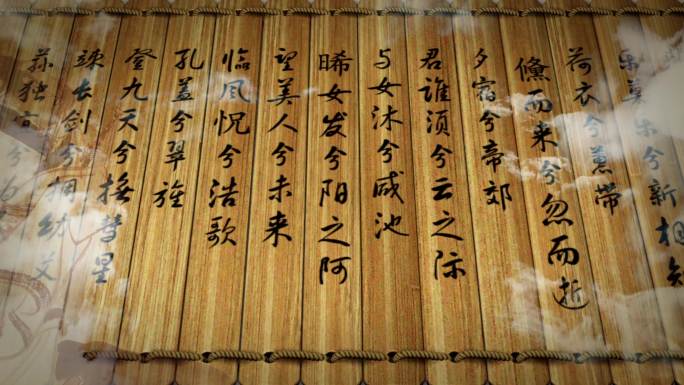 乐莫乐兮新相知
荷衣兮蕙带
儵而来兮忽而逝
夕宿兮帝郊
君谁须兮云之际
与女沐兮咸池
晞女发兮阳之阿
望美人兮未来
临风怳兮浩歌
孔盖兮翠旌
登九天兮撫彗星
竦长剑兮拥幼艾
荪独宜兮